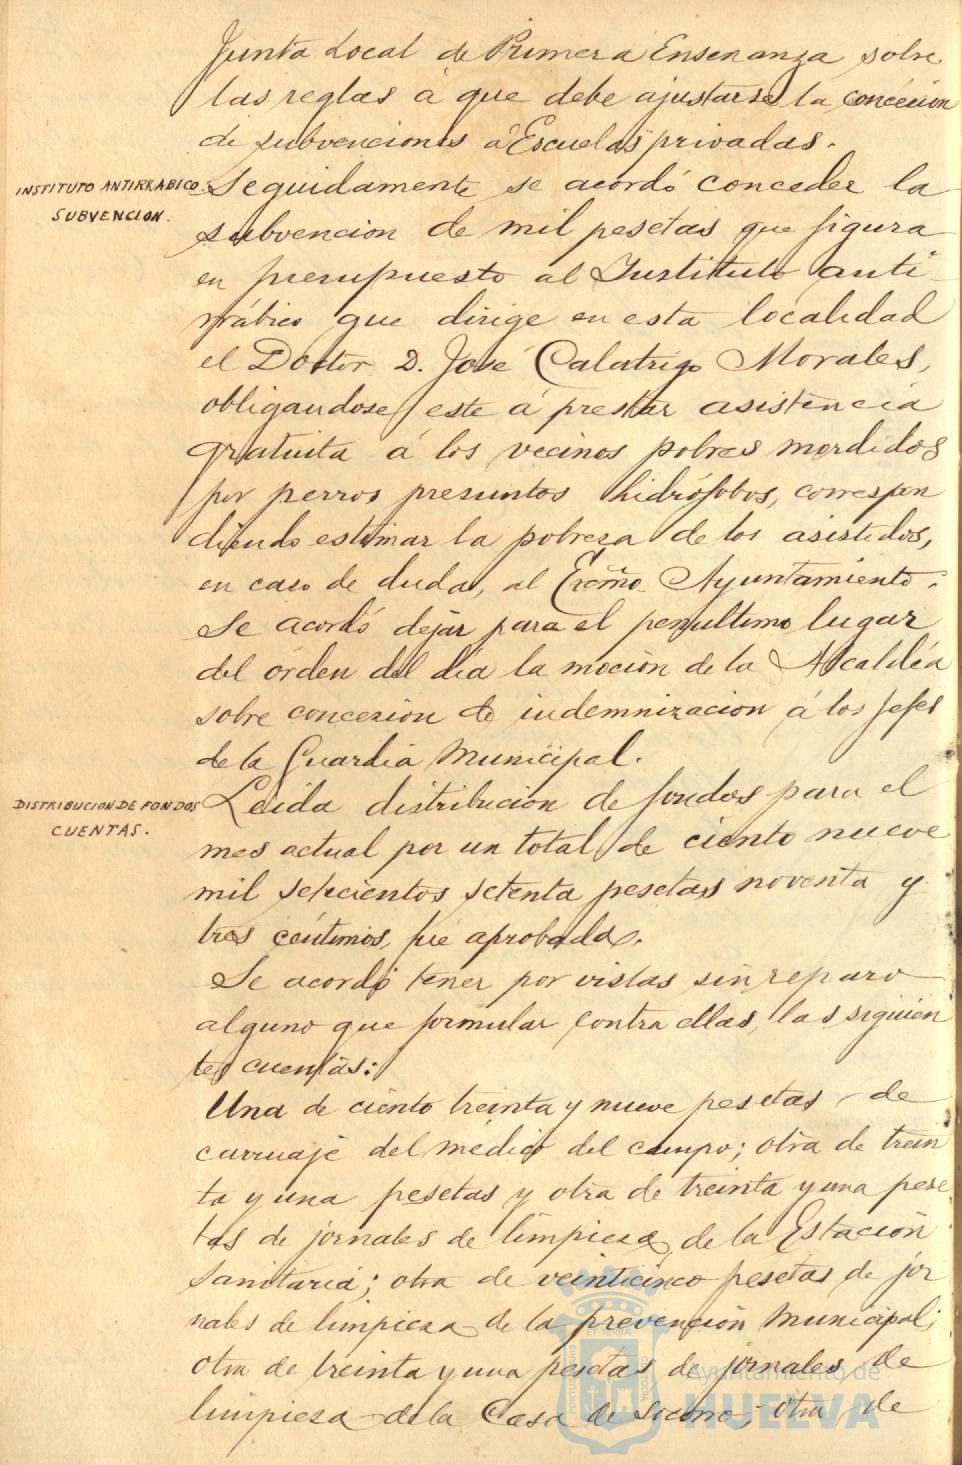 Junta Local de Primera Enseñanza sobre
las reglas á que debe ajustarse la concesion
de subvenciones á Escuelas privadas.
INSTITUTO ANTIRRABICO.
SUBVENCION.
Seguidamente se acordó conceder la
subvencion de mil pesetas que figura
en presupuesto al Instituto anti-
rrábico que dirige en esta localidad
el Doctor D. José Calatrigo Morales,
obligandose este á prestar asistencia
gratuita á los vecinos pobres mordidos
por perros presuntos hidrófobos, correspon
diendo estimar la pobreza de los asistidos,
en caso de duda, al Excmo. Ayuntamiento.
Se acordó dejar para el penultimo lugar
del órden del dia la moción de la Alcaldía
sobre concesion de indemnizacion á los Jefes
de la Guardia Municipal.
DISTRIBUCION DE FONDOS
CUENTAS.
Leida distribucion de fondos para el
mes actual por un total de ciento nueve
mil setecientos setenta pesetas noventa y
tres céntimos, fué aprobada.
Se acordó tener por vistas sin reparo
alguno que formular contra ellas, las siguien
tes cuentas:
Una de ciento treinta y nueve pesetas de
carruaje del médico del campo; otra de trein
ta y una pesetas y otra de treinta y una pese
tas de jornales de limpieza de la Estación
Sanitaria; otra de veinticinco pesetas de jor
nales de limpieza de la prevención Municipal;
otra de treinta y una pesetas de jornales de
limpieza de la Casa de Socorro; otra de
Ayuntamiento de
HUELVA